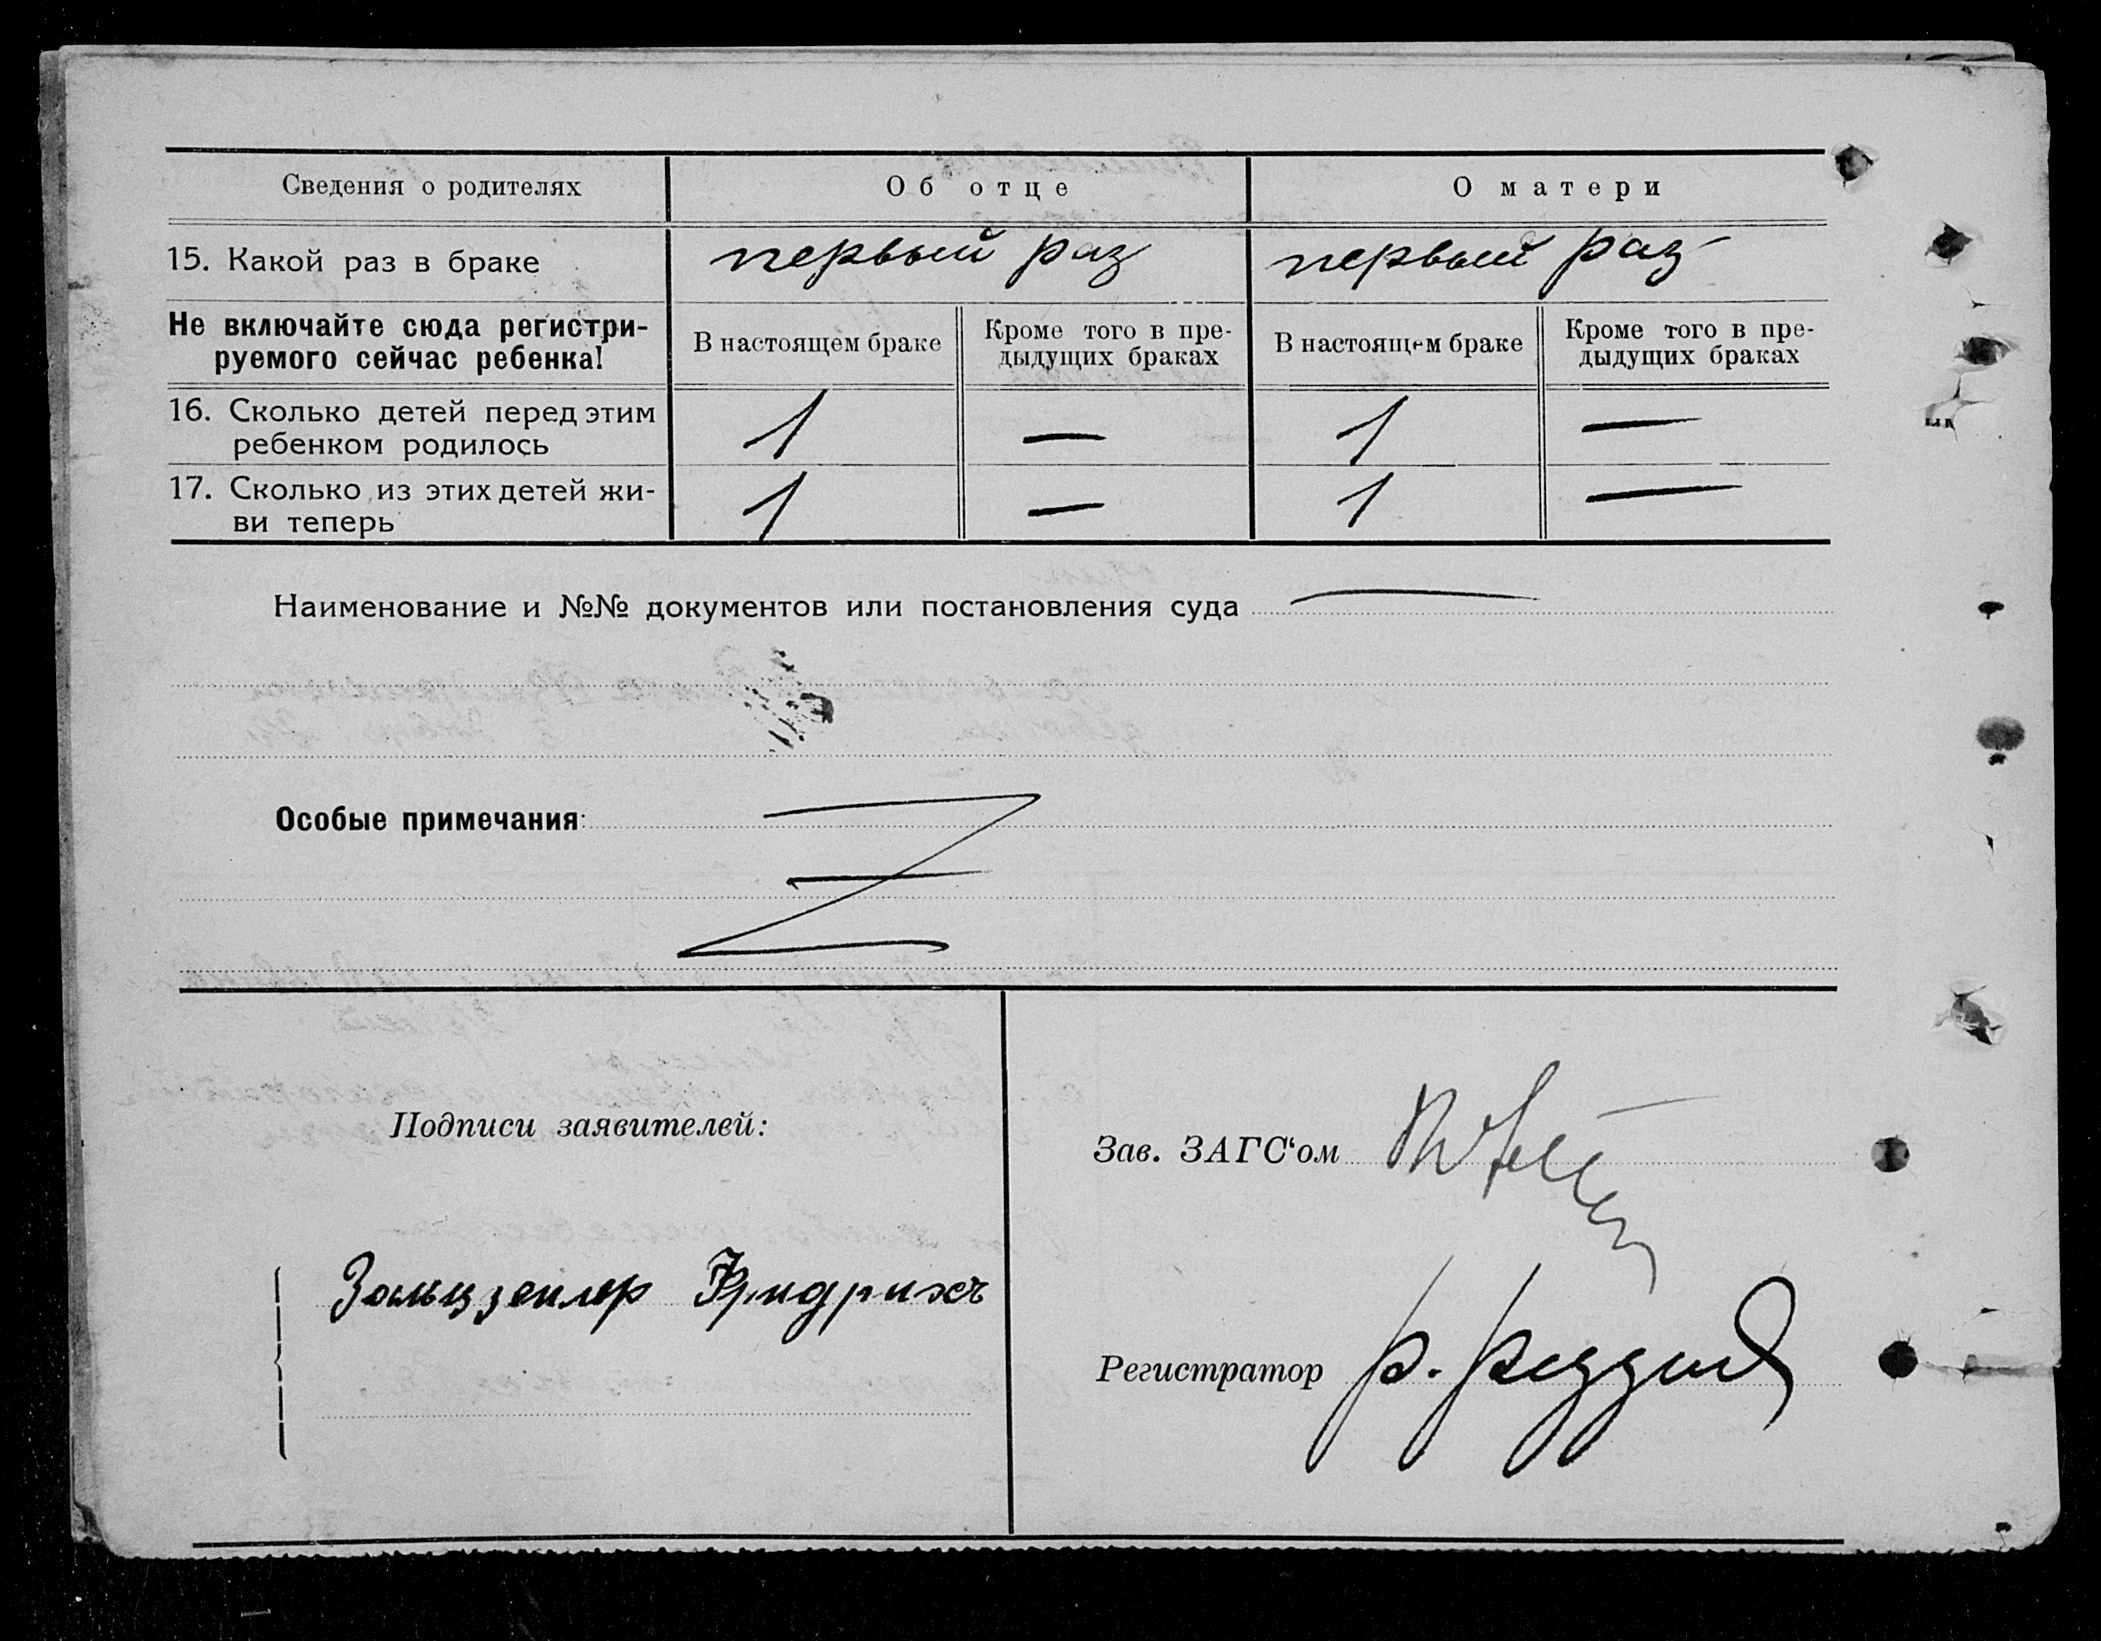 Сведения о родителях
Об отце
О матери
15. Какой раз в браке
первый раз
первый раз
Не включайте сюда регистри-
руемого сейчас ребенка!
В настоящем браке
Кроме того в пре-
дыдущих браках
В настоящем браке
Кроме того в пре-
дыдущих браках
16. Сколько детей перед этим
ребенком родилось
1
—
1
—
17. Сколько из этих детей жи-
ви теперь
1
—
1
—
Наименование и №№ документов или постановления суда —
Особые примечания:
Подписи заявителей:
Зальцзейлер Фридрихъ
Зав. ЗАГС‘ом
Регистратор